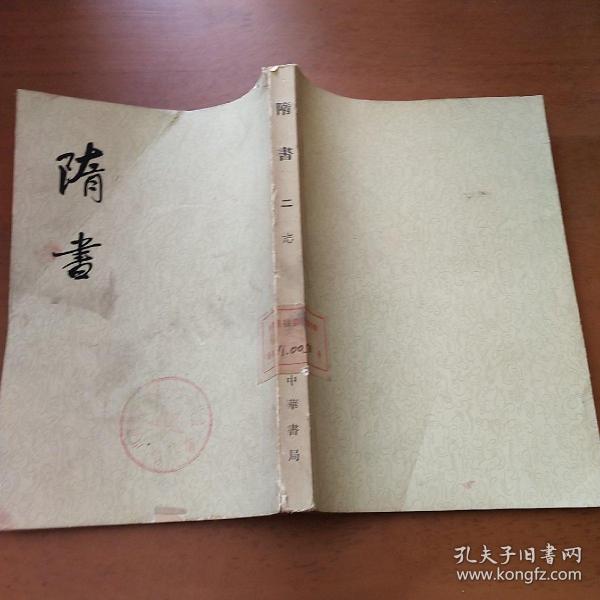 隋書
隋書 二 志
1.00
中華書局
孔夫子旧書网
www.kongfz.com